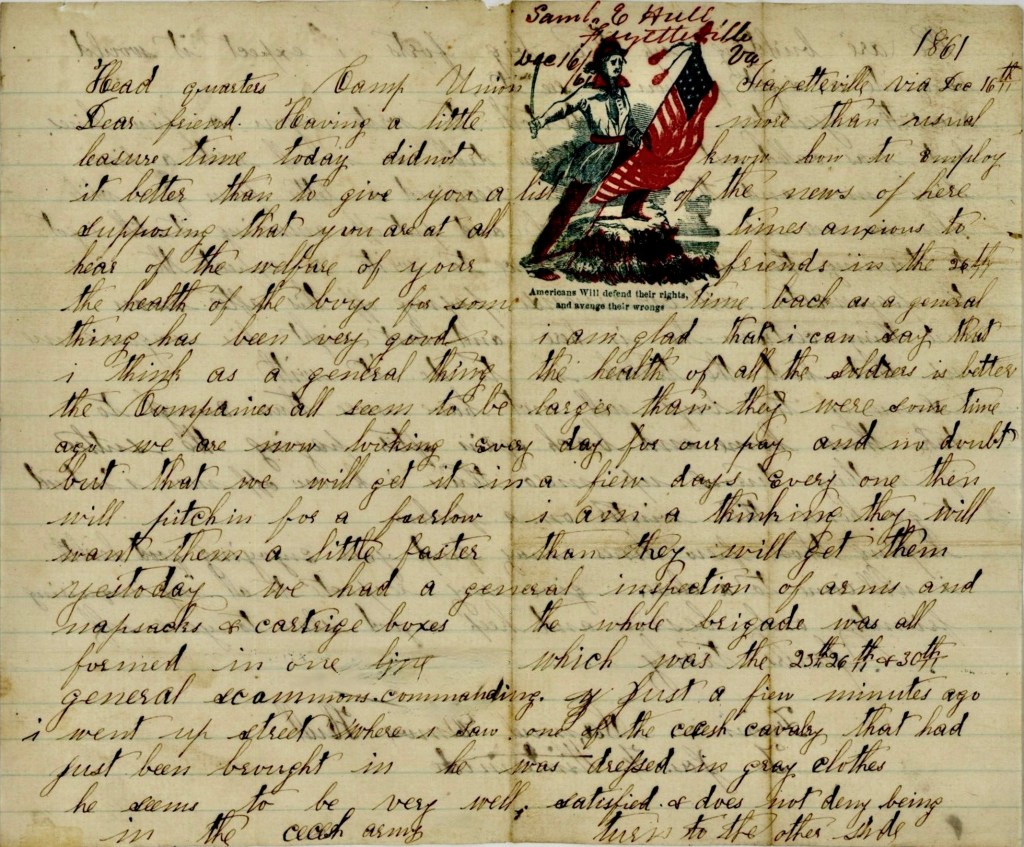 Saml. E Hull
Fayetteville
Dec 16/61 Va
1861
Head quarters Camp Union Fayetteville via Dec 16th
Dear friend. Having a little more than usual
leasure time today didnot know how to employ
it better than to give you a list of the news of here
supposing that you are at all times anxious to
hear of the welfare of your friends in the 26th
the health of the boys for some time back as a general
thing has been very good i am glad that i can say that
i think as a general thing the health of all the soldiers is better
the Compaines all seem to be larger than they were some time
ago we are now looking every day for our pay and no doubt
but that we will get it in a fiew days every one then
will pitch in for a furlow i am a thinking they will
want them a little faster than they will get them
yestoday we had a general inspection of arms and
napsacks & cartrige boxes the whole brigade was all
formed in one line which was the 23th 26th & 30th
general scammons. commanding. Just a fiew minutes ago
i went up street where i saw one of the cecesh cavalry that had
just been brought in he was dressed in gray clothes
he seems to be very well satisfied. & does not deny being
in the cecesh army turn to the other side
Americans Will defend their rights,
and avenge their wrongs